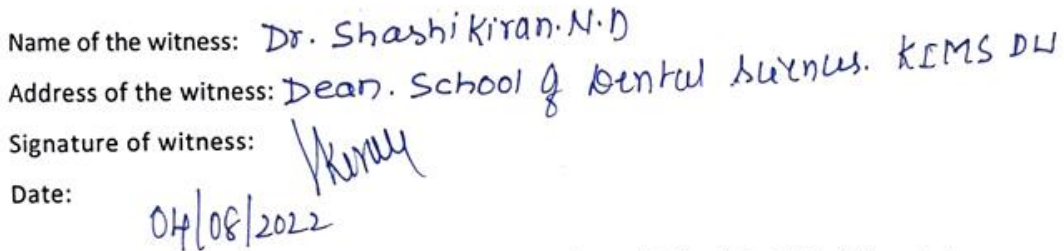 Name of the witness: Dr. Shashikiran.N.D
Address of the witness: Dean. School of Dental Sciences. KIMS DU
Signature of witness: SKiran
Date: 04/08/2022